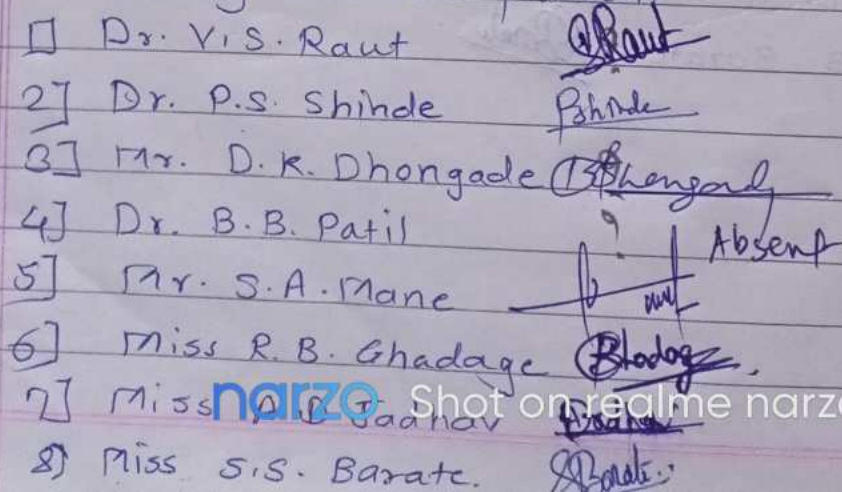 1] Dr. V.S. Raut Raut
2] Dr. P.S. Shinde PShinde
3] Mr. D.K. Dhongade
4] Dr. B.B. Patil ? Absent
5] Mr. S.A. Mane
6] Miss R.B. Ghadage
7] Miss Jadhav
narzo Shot on realme narzo
8) Miss S.S. Barate. SBarate